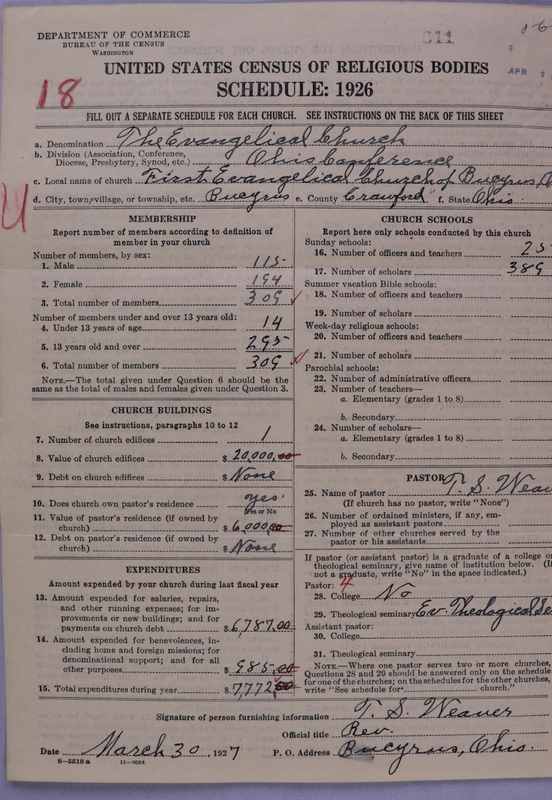 DEPARTMENT OF COMMERCE
BUREAU OF THE CENSUS
WASHINGTON
811
APR
18
UNITED STATES CENSUS OF RELIGIOUS BODIES
SCHEDULE: 1926
FILL OUT A SEPARATE SCHEDULE FOR EACH CHURCH. SEE INSTRUCTIONS ON THE BACK OF THIS SHEET
a. Denomination The Evangelical Church
b. Division (Association, Conference, Diocese, Presbytery, Synod, etc.) Ohio Conference
c. Local name of church First Evangelical Church of Bucyrus, O
d. City, town, village, or township, etc. Bucyrus e. County Crawford f. State Ohio
MEMBERSHIP
Report number of members according to definition of
member in your church
Number of members, by sex:
1. Male 115
2. Female 194
3. Total number of members 309
Number of members under and over 13 years old:
4. Under 13 years of age 14
5. 13 years old and over 295
6. Total number of members 309
NOTE.—The total given under Question 6 should be
same as the total of males and females given under Question 3.
CHURCH BUILDINGS
See instructions, paragraphs 10 to 12
7. Number of church edifices 1
8. Value of church edifices $ 20,000.00
9. Debt on church edifices $ None
10. Does church own pastor's residence yes
Yes or No
11. Value of pastor's residence (if owned by
church) $ 6,000.00
12. Debt on pastor's residence (if owned by
church) $ None
EXPENDITURES
Amount expended by your church during last fiscal year
13. Amount expended for salaries, repairs,
and other running expenses; for im-
provements or new buildings; and for
payments on church debt $ 6,787.00
14. Amount expended for benevolences, in-
cluding home and foreign missions; for
denominational support; and for all
other purposes $ 985.00
15. Total expenditures during year $ 7,772.00
CHURCH SCHOOLS
Report here only schools conducted by this church
Sunday schools:
16. Number of officers and teachers 25
17. Number of scholars 389
Summer vacation Bible schools:
18. Number of officers and teachers
19. Number of scholars
Week-day religious schools:
20. Number of officers and teachers
21. Number of scholars
Parochial schools:
22. Number of administrative officers
23. Number of teachers—
a. Elementary (grades 1 to 8)
b. Secondary
24. Number of scholars—
a. Elementary (grades 1 to 8)
b. Secondary
PASTOR
25. Name of pastor T. S. Weav
(If church has no pastor, write "None")
26. Number of ordained ministers, if any, em-
ployed as assistant pastors
27. Number of other churches served by the
pastor or his assistants
If pastor (or assistant pastor) is a graduate of a college or
theological seminary, give name of institution below. (If
not a graduate, write "No" in the space indicated.)
Pastor: 4
28. College No
29. Theological seminary Ev. Theological Se
Assistant pastor:
30. College
31. Theological seminary
NOTE.—Where one pastor serves two or more churches,
Questions 28 and 29 should be answered only on the schedule
for one of the churches; on the schedules for the other churches,
write "See schedule for church."
Signature of person furnishing information T. S. Weaver
Official title Rev.
Date March 30, 1927 P. O. Address Bucyrus, Ohio.
8—5518 a 11—9054